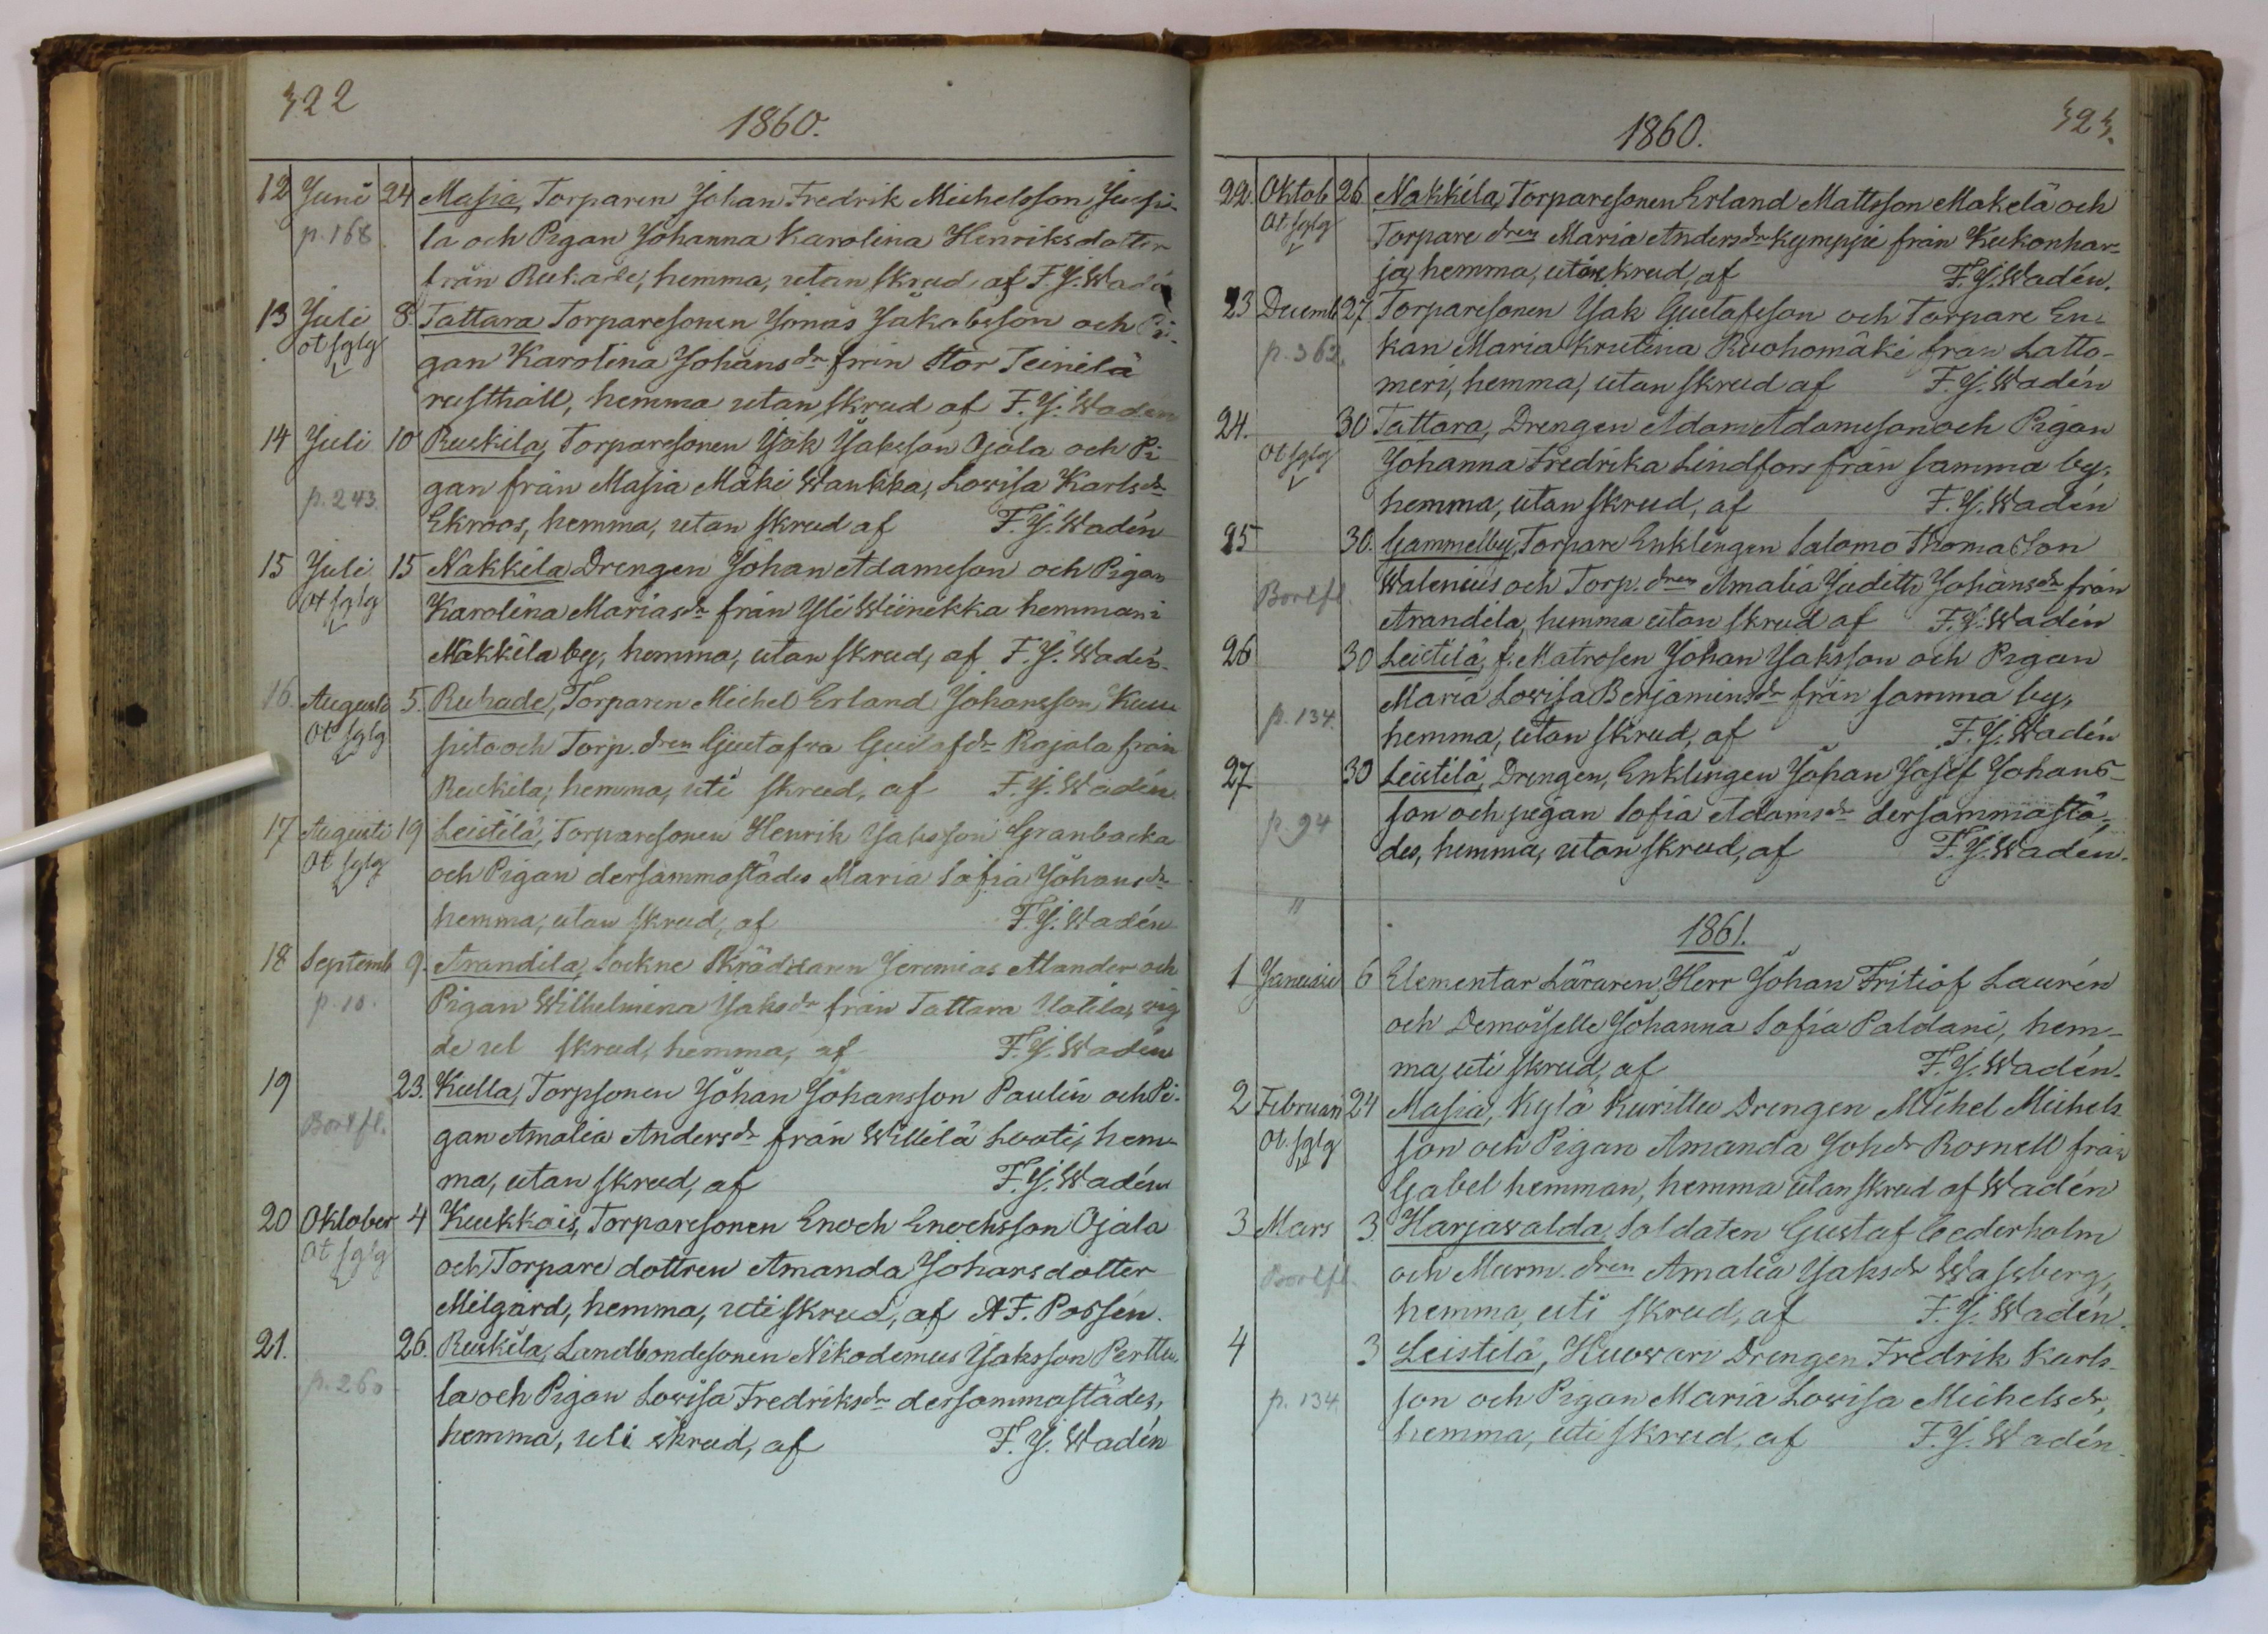 322
1860.
12 Juni 24 Masia, Torparen Johan Fredrik Michelsson Jussi-
p. 168 la och Pigan Johanna Karolina Henriksdotter
från Ruhade, hemma, utan skrud, af F. J. Wadén
13 Juli 8. Tattara Torparesonen Jonas Jakobsson och Pi-
ot sglg gan Karolina Johansdr från Stor Teinilä
rusthåll, hemma utan skrud af F. J. Wadén
14 Juli 10 Ruskila, Torparesonen Jak Jaksson Ojala och Pi
p. 243. gan från Masia Mäki Waukka, Lovisa Karlsdr
Ekroos, hemma, utan skrud af F. J. Wadén
15 Juli 15 Nakkila Drengen Johan Adamsson och Pigan
ot sglg Karolina Mariasdr från Yli Wiinikka hemman i
Nakkila by, hemma, utan skrud, af F. J. Wadén.
16. Augusti 5. Ruhade, Torparen Michel Erland Johansson Kuu
ot sglg sisto och Torp. dren Gustafva Gustafdr Rajala från
Ruskila, hemma, uti skrud, af F. J. Wadén.
17 Augusti 19 Leistilä, Torparesonen Henrik Jaksson Granbacka
ot sglg och Pigan dersammastädes Maria Sofia Johansdr
hemma, utan skrud, af F. J. Wadén
18 Septemb 9. Arandila, Sockne Skräddaren Jeremias Mander och
p. 10. Pigan Wilhelmina Jaksdr från Tattara Uotila, vig
de uti skrud, hemma, af F. J. Wadén
19 23. Kulla, Torpsonen Johan Johansson Paulin och Pi-
Bortfl. gan Amalia Andersdr från Willilä Luoti, hem-
ma, utan skrud, af F. J. Wadén
20 Oktober 4 Kukkois, Torparesonen Enoch Enochsson Ojala
ot sglg och Torpare dottren Amanda Johansdotter
Milgård, hemma, uti skrud, af A F. Possén.
21. 26. Ruskila, Landbondesonen Nikodemus Jaksson Perttu
p. 260 la och Pigan Lovisa Fredriksdr dersammastädes,
hemma, uti skrud, af F. J. Wadén
323.
1860.
22. Oktob 26 Nakkila, Torparesonen Erland Mattsson Makelä och
ot sglg Torpare dren Maria Andersdr Kymppi från Kukonhar-
ja, hemma, utan skrud, af F. J. Wadén.
23 Decemb 27. Torparesonen Jak Gustafsson och Torpare En-
p. 362. kan Maria Kristina Ruohomäki från Latto-
meri, hemma, utan skrud af F. J. Wadén
24. 30 Tattara, Drengen Adam Adamsson och Pigan
ot sglg Johanna Fredrika Lindfors från samma by,
hemma, utan skrud, af F. J. Wadén
25 30. Gammelby, Torpare Enklingen Salomo Thomasson
Bortfl. Walenius och Torp. dren Amalia Judith Johansdr från
Arandila, hemma utan skrud af F. J. Wadén
26 30 Leistilä, f. Matrosen Johan Jaksson och Pigan
p. 134. Maria Lovisa Benjaminsdr från samma by,
hemma, utan skrud, af F. J. Wadén
27 30 Leistilä, Drengen, Enklingen Johan Josef Johans-
p. 94 son och pigan Sofia Adamsdr dersammastä-
des, hemma, utan skrud, af F. J. Wadén.
"
1861.
1 Januari 6 Elementar Läraren, Herr Johan Fritiof Laurén
och Demoiselle Johanna Sofia Paldani, hem-
ma, uti skrud, af F. J. Wadén.
2 Februari 24 Masia, Kylä Kurittu Drengen Mikel Michels
ot. sglg son och Pigan Amanda Johdr Rosnell från
Gabel hemman, hemma utan skrud af Wadén
3 Mars 3 Harjawalda, Soldaten Gustaf Cederholm
Bortfl. och Murm. dren Amalia Jaksdr Wassberg,
hemma, uti skrud, af F. J. Wadén.
4 3 Leistilä, Huovari Drengen Fredrik Karls-
p. 134. son och Pigan Maria Lovisa Michelsdr,
hemma, uti skrud, af F. J. Wadén.